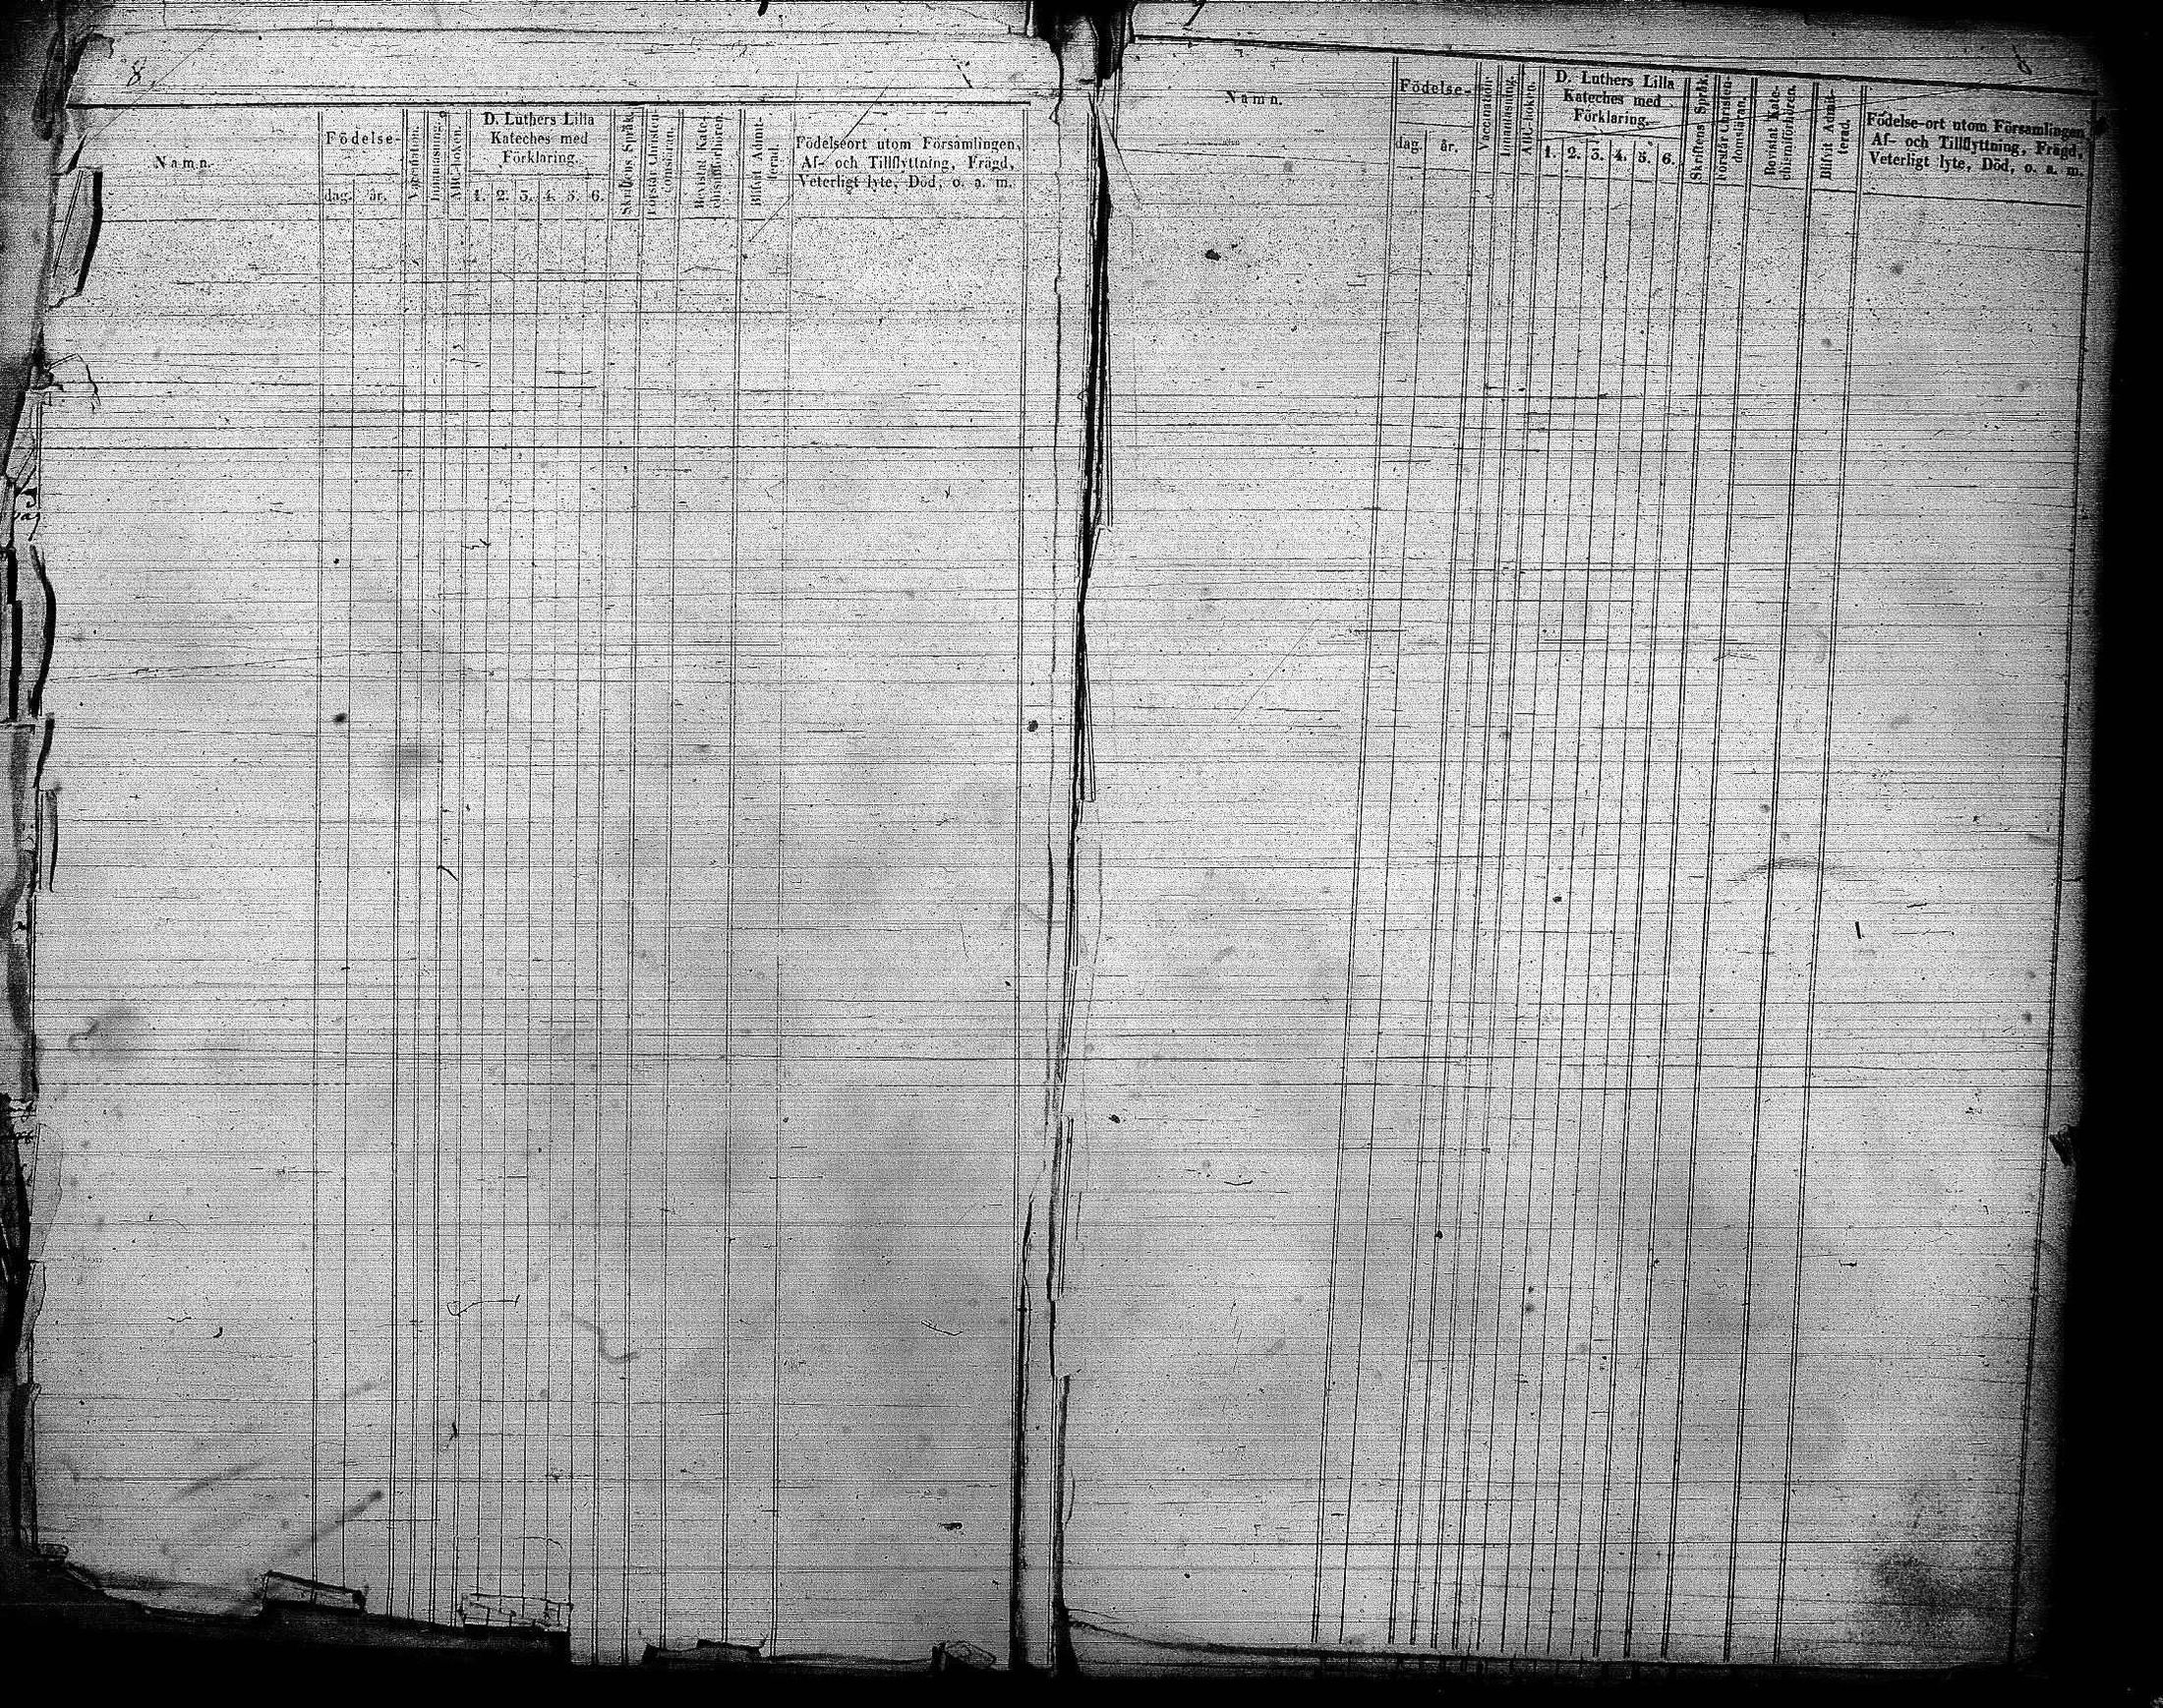 8.
Namn.
Födelse-
dag. år.
Vaccination.
Innanläsning.
ABC-boken.
D. Luthers Lilla
Kateches med
Förklaring.
1. 2. 3. 4. 5. 6.
Skriftens Språk.
Förstår Christen-
domsläran.
Bevistat Kate-
chismiförhören.
Blifvit Admit-
terad.
Födelseort utom Församlingen,
Af- och Tillflyttning, Frägd,
Veterligt lyte, Död, o. a. m.
8
Namn.
Födelse-
dag. år.
Vaccination.
Innanläsning.
ABC-boken.
D. Luthers Lilla
Kateches med
Förklaring.
1. 2. 3. 4. 5. 6.
Skriftens Språk.
Förstår Christen-
domsläran.
Bevistat Kate-
chismiförhören.
Blifvit Admit-
terad.
Födelse-ort utom Församlingen,
Af- och Tillflyttning, Frägd,
Veterligt lyte, Död, o. a. m.